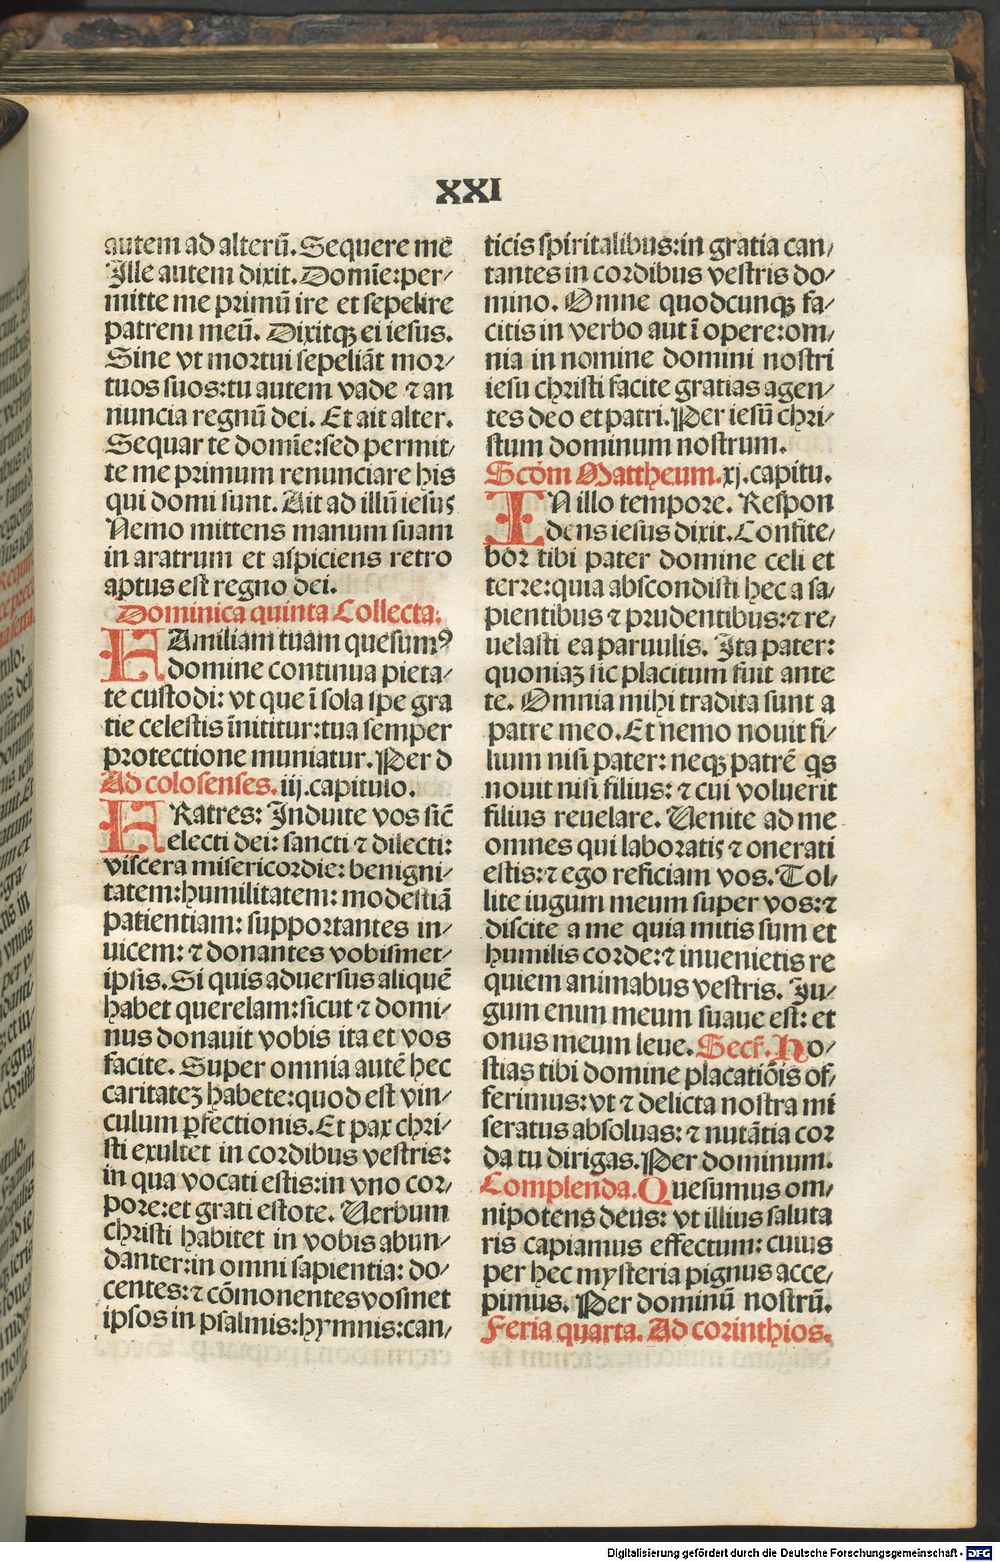 XXI
autem ad alterū. Sequere me
Ille autem dixit. Domīe: per⸗
mitte me primū ire et sepelire
patrem meū. Dixitqꝫ ei iesus.
Sine vt mortui sepeliāt mor⸗
tuos suos: tu autem vade ⁊ an
nuncia regnū dei. Et ait alter.
Sequar te domīe: sed permit⸗
te me primum renunciare his
qui domi sunt. Ait ad illū iesus
Nemo mittens manum suam
in aratrum et aspiciens retro
aptus est regno dei.
Dominica quinta Collecta.
FAmiliam tuam quesumꝰ
domine continua pieta⸗
te custodi: vt que ī sola spe gra
tie celestis īnititur: tua semper
protectione muniatur. Per d
Ad colosenses. iij. capitulo.
FRatres: Induite vos sic̄
electi dei: sancti ⁊ dilecti:
viscera misericordie: benigni⸗
tatem: humilitatem: modestiā
patientiam: supportantes in⸗
uicem: ⁊ donantes vobismet⸗
ipsis. Si quis aduersus aliquē
habet querelam: sicut ⁊ domi⸗
nus donauit vobis ita et vos
facite. Super omnia autē hec
caritateꝫ habete: quod est vin⸗
culum ꝑfectionis. Et pax chri⸗
sti exultet in cordibus vestris:
in qua vocati estis: in vno cor⸗
pore: et grati estote. Uerbum
christi habitet in vobis abun⸗
danter: in omni sapientia: do⸗
centes: ⁊ cōmonentes vosmet
ipsos in psalmis: hymnis: can⸗
ticis spiritalibus: in gratia can⸗
tantes in cordibus vestris do⸗
mino. Omne quodcunqꝫ fa⸗
citis in verbo aut ī opere: om⸗
nia in nomine domini nostri
iesu christi facite gratias agen⸗
tes deo et patri. Per iesū chri⸗
stum dominum nostrum.
Scōm Mattheum. xj. capitu.
IN illo tempore. Respon
dens iesus dixit. Confite⸗
bor tibi pater domine celi et
terre: quia abscondisti hec a sa⸗
pientibus ⁊ prudentibus: ⁊ re⸗
uelasti ea paruulis. Ita pater:
quoniaꝫ sic placitum fuit ante
te. Omnia mihi tradita sunt a
patre meo. Et nemo nouit fi⸗
lium nisi pater: neqꝫ patrē qͥs
nouit nisi filius: ⁊ cui voluerit
filius reuelare. Uenite ad me
omnes qui laboratis ⁊ onerati
estis: ⁊ ego reficiam vos. Tol⸗
lite iugum meum super vos: ⁊
discite a me quia mitis sum et
humilis corde: ⁊ inuenietis re
quiem animabus vestris. Iu⸗
gum enim meum suaue est: et
onus meum leue. Secr̄. Ho⸗
stias tibi domine placatiōis of⸗
ferimus: vt ⁊ delicta nostra mi
seratus absoluas: ⁊ nutātia cor
da tu dirigas. Per dominum.
Complenda. Quesumus om⸗
nipotens deus: vt illius saluta
ris capiamus effectum: cuius
per hec mysteria pignus acce⸗
pimus. Per dominū nostrū.
Feria quarta. Ad corinthios.
Digitalisierung gefördert durch die Deutsche Forschungsgemeinschaft - DFG